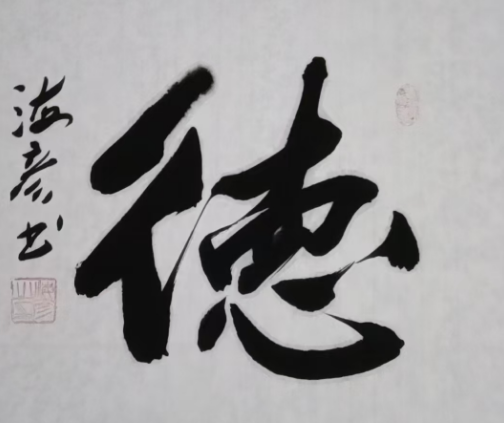 德
海彦书